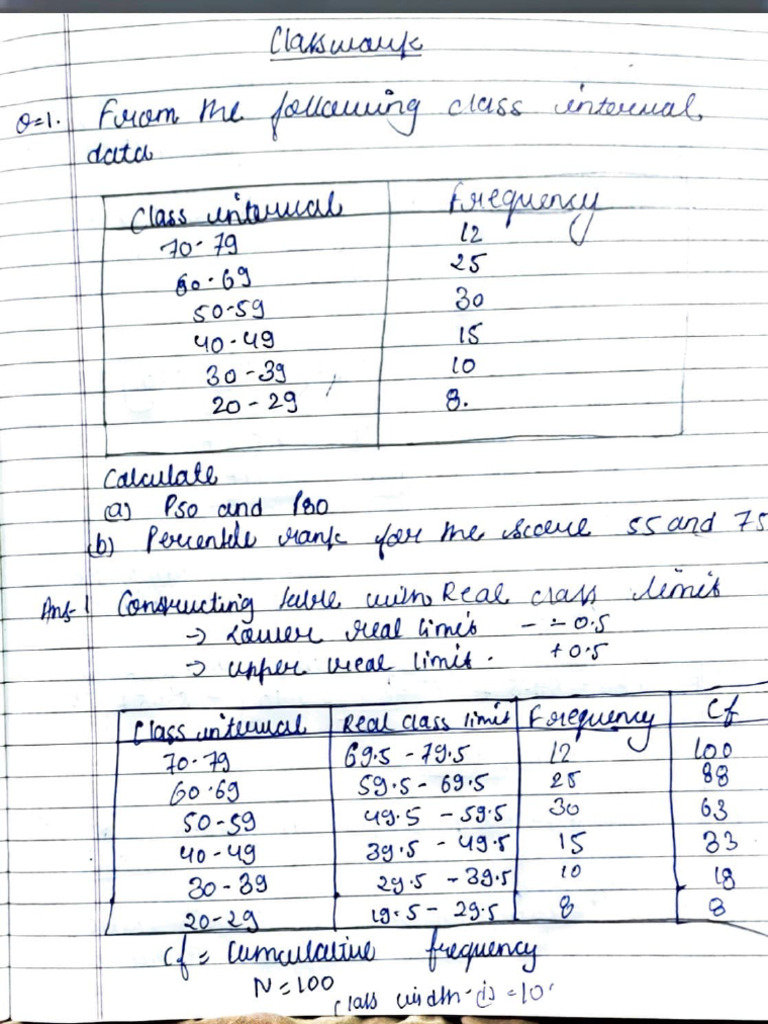 Classwork
Q=1. From the following class interval
data
Class interval Frequency
70-79 12
60-69 25
50-59 30
40-49 15
30-39 10
20-29 8.
Calculate
(a) P50 and P80
(b) Percentile rank for the score 55 and 75
Ans-1 Constructing table with Real class limit
→ Lower real limit - = 0.5
→ upper real limit. +0.5
Class interval Real class limit Frequency Cf
70-79 69.5 - 79.5 12 100
60-69 59.5 - 69.5 25 88
50-59 49.5 - 59.5 30 63
40-49 39.5 - 49.5 15 33
30-39 29.5 - 39.5 10 18
20-29 19.5 - 29.5 8 8
Cf = Cumulative frequency
N = 100
Class width (i) = 10